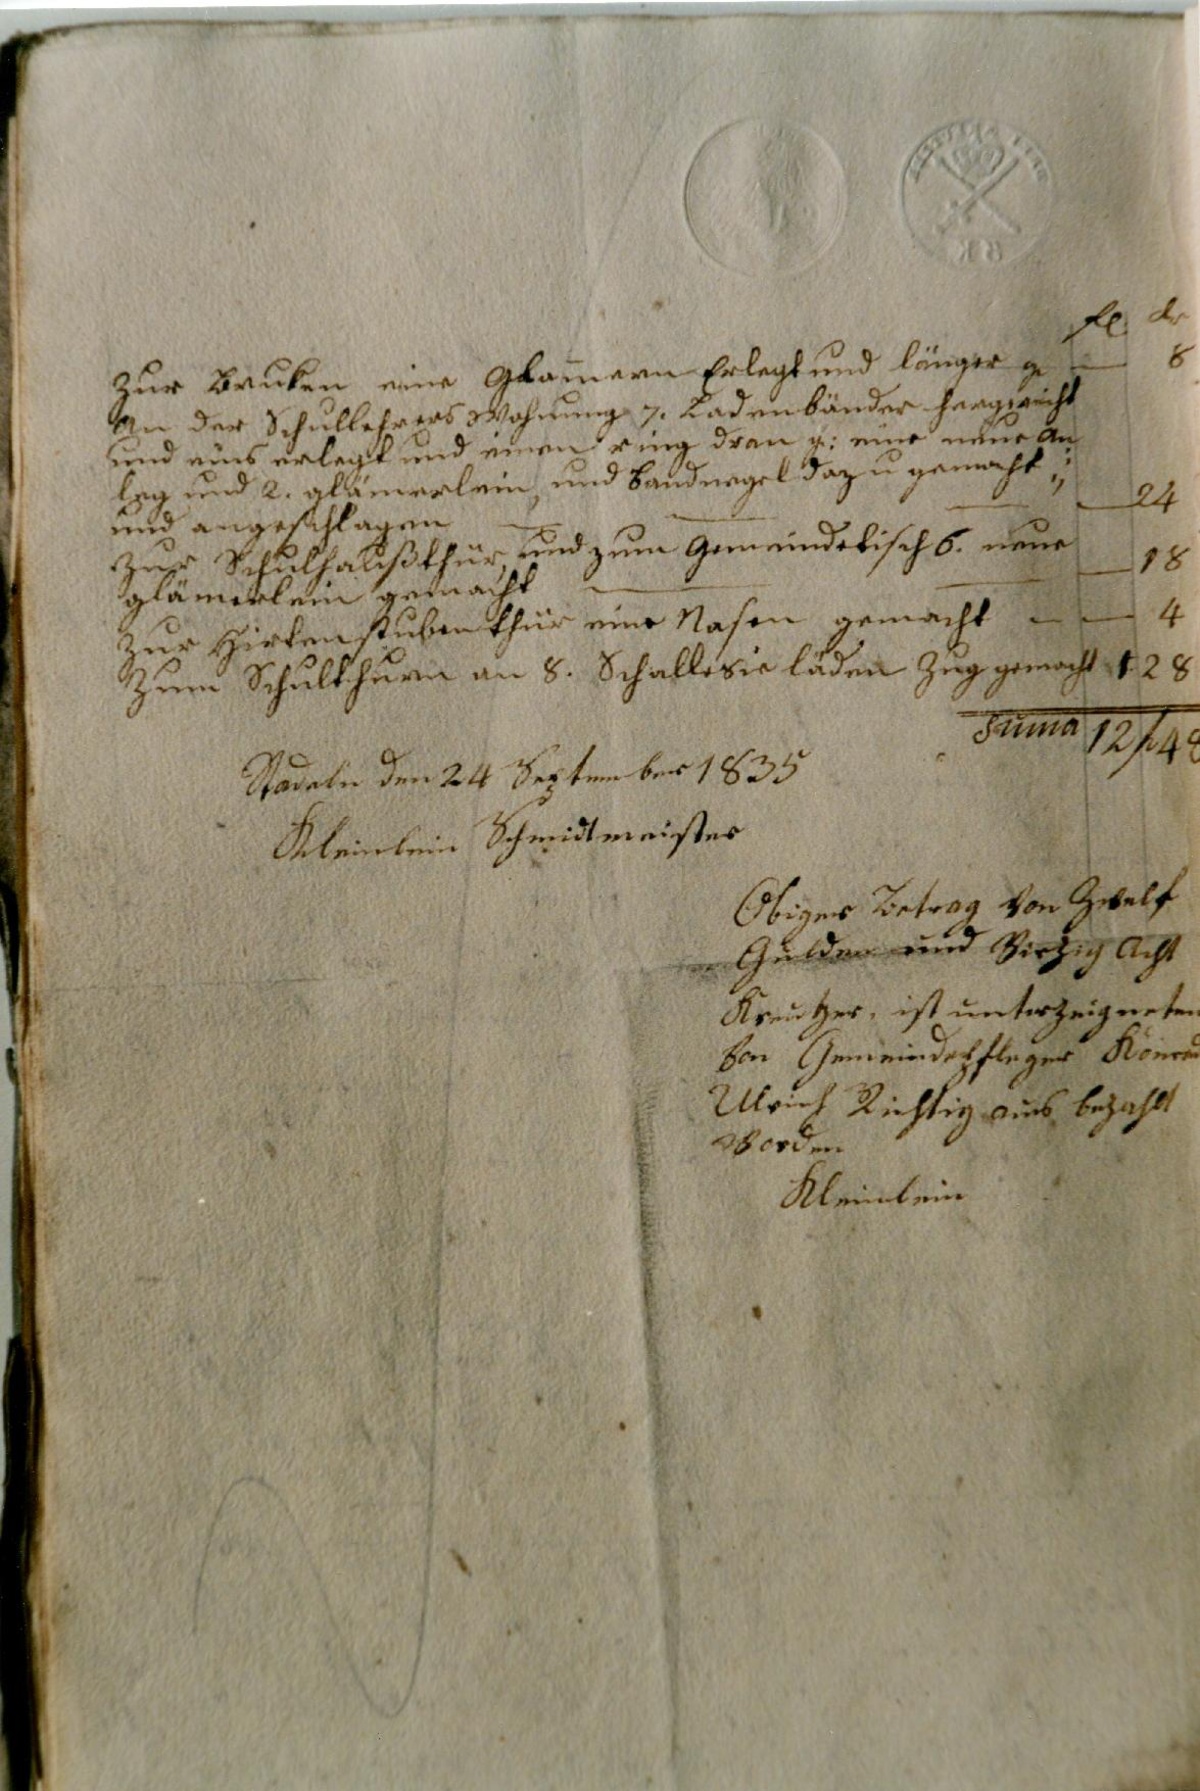 fl. kr
Zur Bruken eine Glamern Erlegt und länger g — 8
An der Schullehrers Wohnung 7. Ladenbänder hergericht
und eins erlegt und einen ring dran g: eine neue An
leg und 2. glämerlein, und bandnegel dazu gemacht
und angeschlagen — — — — 24
Zur Schulhaußthür, und zum Gemeindetisch 6. neue
glämerlein gemacht — — — 18
Zur Hirtenstubenthür eine Nasen gemacht — — 4
Zum Schulthurm an 8. Schallesie läden Zug gemacht 1 28
Suma 12 48
Stadeln den 24 September 1835
Kleinlein Schmidtmeister
Obiger Betrag von Zwelf
Gulden und Vierzig Acht
Kreutzer, ist unterzeigneten
von Gemeindepfleger Konrad
Ulrich Richtig aus bezahlt
worden
Kleinlein